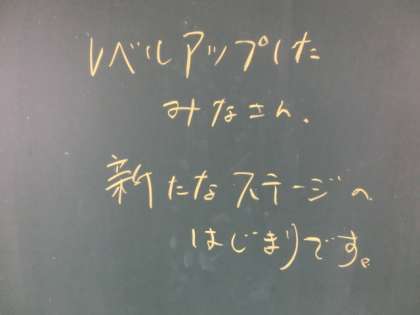 レベルアップした
みなさん、
新たなステージの
はじまりです。